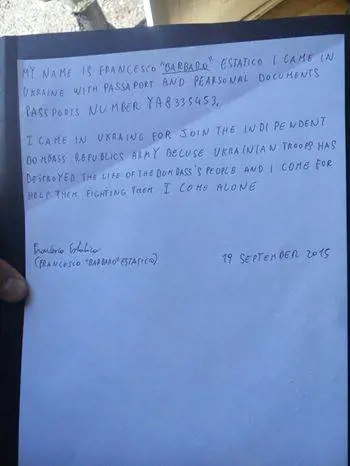 MY NAME IS FRANCESCO "BARBARO" ESTATICO I CAME IN
UKRAINE WITH PASSAPORT AND PEARSONAL DOCUMENTS
PASSPORTS NUMBER YA8335453,
I CAME IN UKRAINE FOR JOIN THE INDIPENDENT
DOMBASS REPUBLICS ARMY BECUSE UKRAINIAN TROOPS HAS
DESTROYED THE LIFE OF THE DOMBASS'S PEOPLE AND I COME FOR
HELP THEM FIGHTING THEM I COME ALONE
Francesco Estatico
(FRANCESCO "BARBARO" ESTATICO)
19 SEPTEMBER 2015